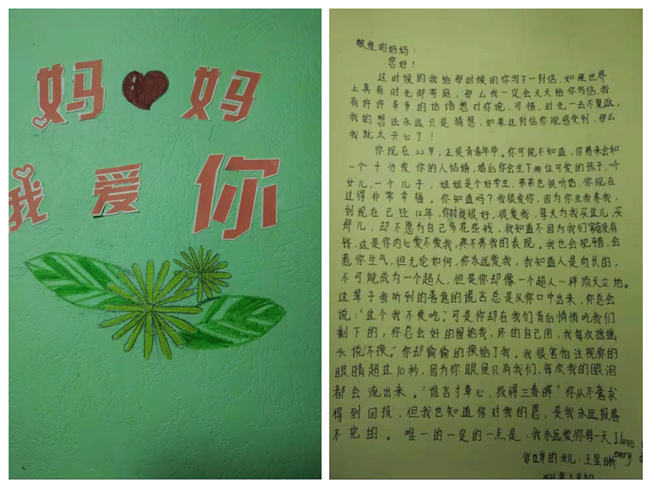 妈妈
我爱你
敬爱的妈妈：
您好！
这时候的我给那时候的你写下一封信，如果世界
上具有时光邮寄庭，那么我一定会天天给你写信，我
有许许多多的话语想对你说，可惜，时光一去不复返，
我的想法永远只是猜想，如果这封信你能感受到，那么
我就太开心了！
你现在22岁，正是青春年华。你可能不知道，你将来会和
一个十分爱你的人结婚，婚后你会生下两位可爱的孩子，一个
女儿，一个儿子，姐姐是个好学生，弟弟也很听话，你现在
过得非常幸福。你知道吗？我很爱你，因为你生我养我，
到现在已经12年，你对我很好，很爱我，每天为我买这儿，买
那儿，却不愿为自己多花些钱，我知道不因为我们家没有
钱，这是你内心爱不爱我，疼不疼我的表现。我也会犯错，会
惹你生气，但无论如何，你永远爱我，我知道人是肉长的，
不可能成为一个超人，但是你却像一个超人一样顶天立地。
这辈子我听到的善意的谎言总是从你口中出来，你总会
说：“这个我不爱吃。”可是你却在我们背后悄悄吃我们
剩下的，你总会好的留给我，坏的自己用，我每次摇摇
头说“不换。”你却偷偷的换给了我。我很害怕注视你的
眼睛超过10秒，因为你眼里只有我们，每次我的眼泪
都会流出来。“谁言寸草心，报得三春晖”你从不奢求
得到回报，但我也知道你对我的恩，是我永远报答
不完的。唯一的一定的一点是：我永远爱你每一天 I love
every
你12岁的女儿：王昱晰